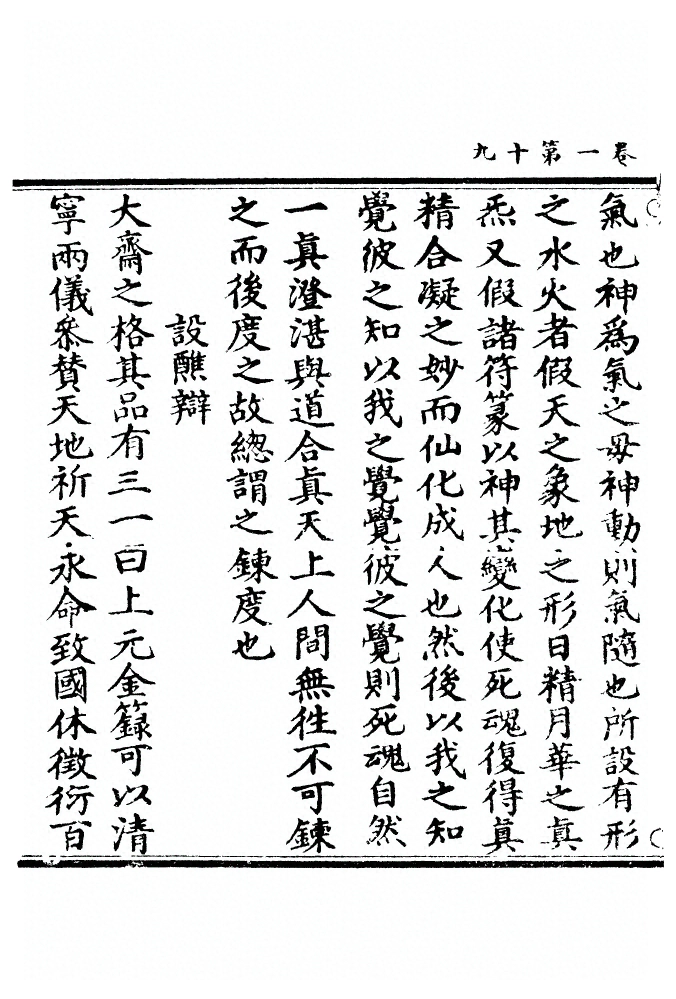 卷一第十九
氣也神爲氣之母神動則氣隨也所設有形
之水火者假天之象地之形日精月華之真
炁又假諸符篆以神其變化使死魂復得真
精合凝之妙而仙化成人也然後以我之知
覺彼之知以我之覺覺彼之覺則死魂自然
一真澄湛與道合真天上人間無徃不可鍊
之而後度之故緫謂之鍊度也
設醮辯
大齋之格其品有三一曰上元金籙可以清
寧兩儀叅賛天地祈天永命致國休徵衍百